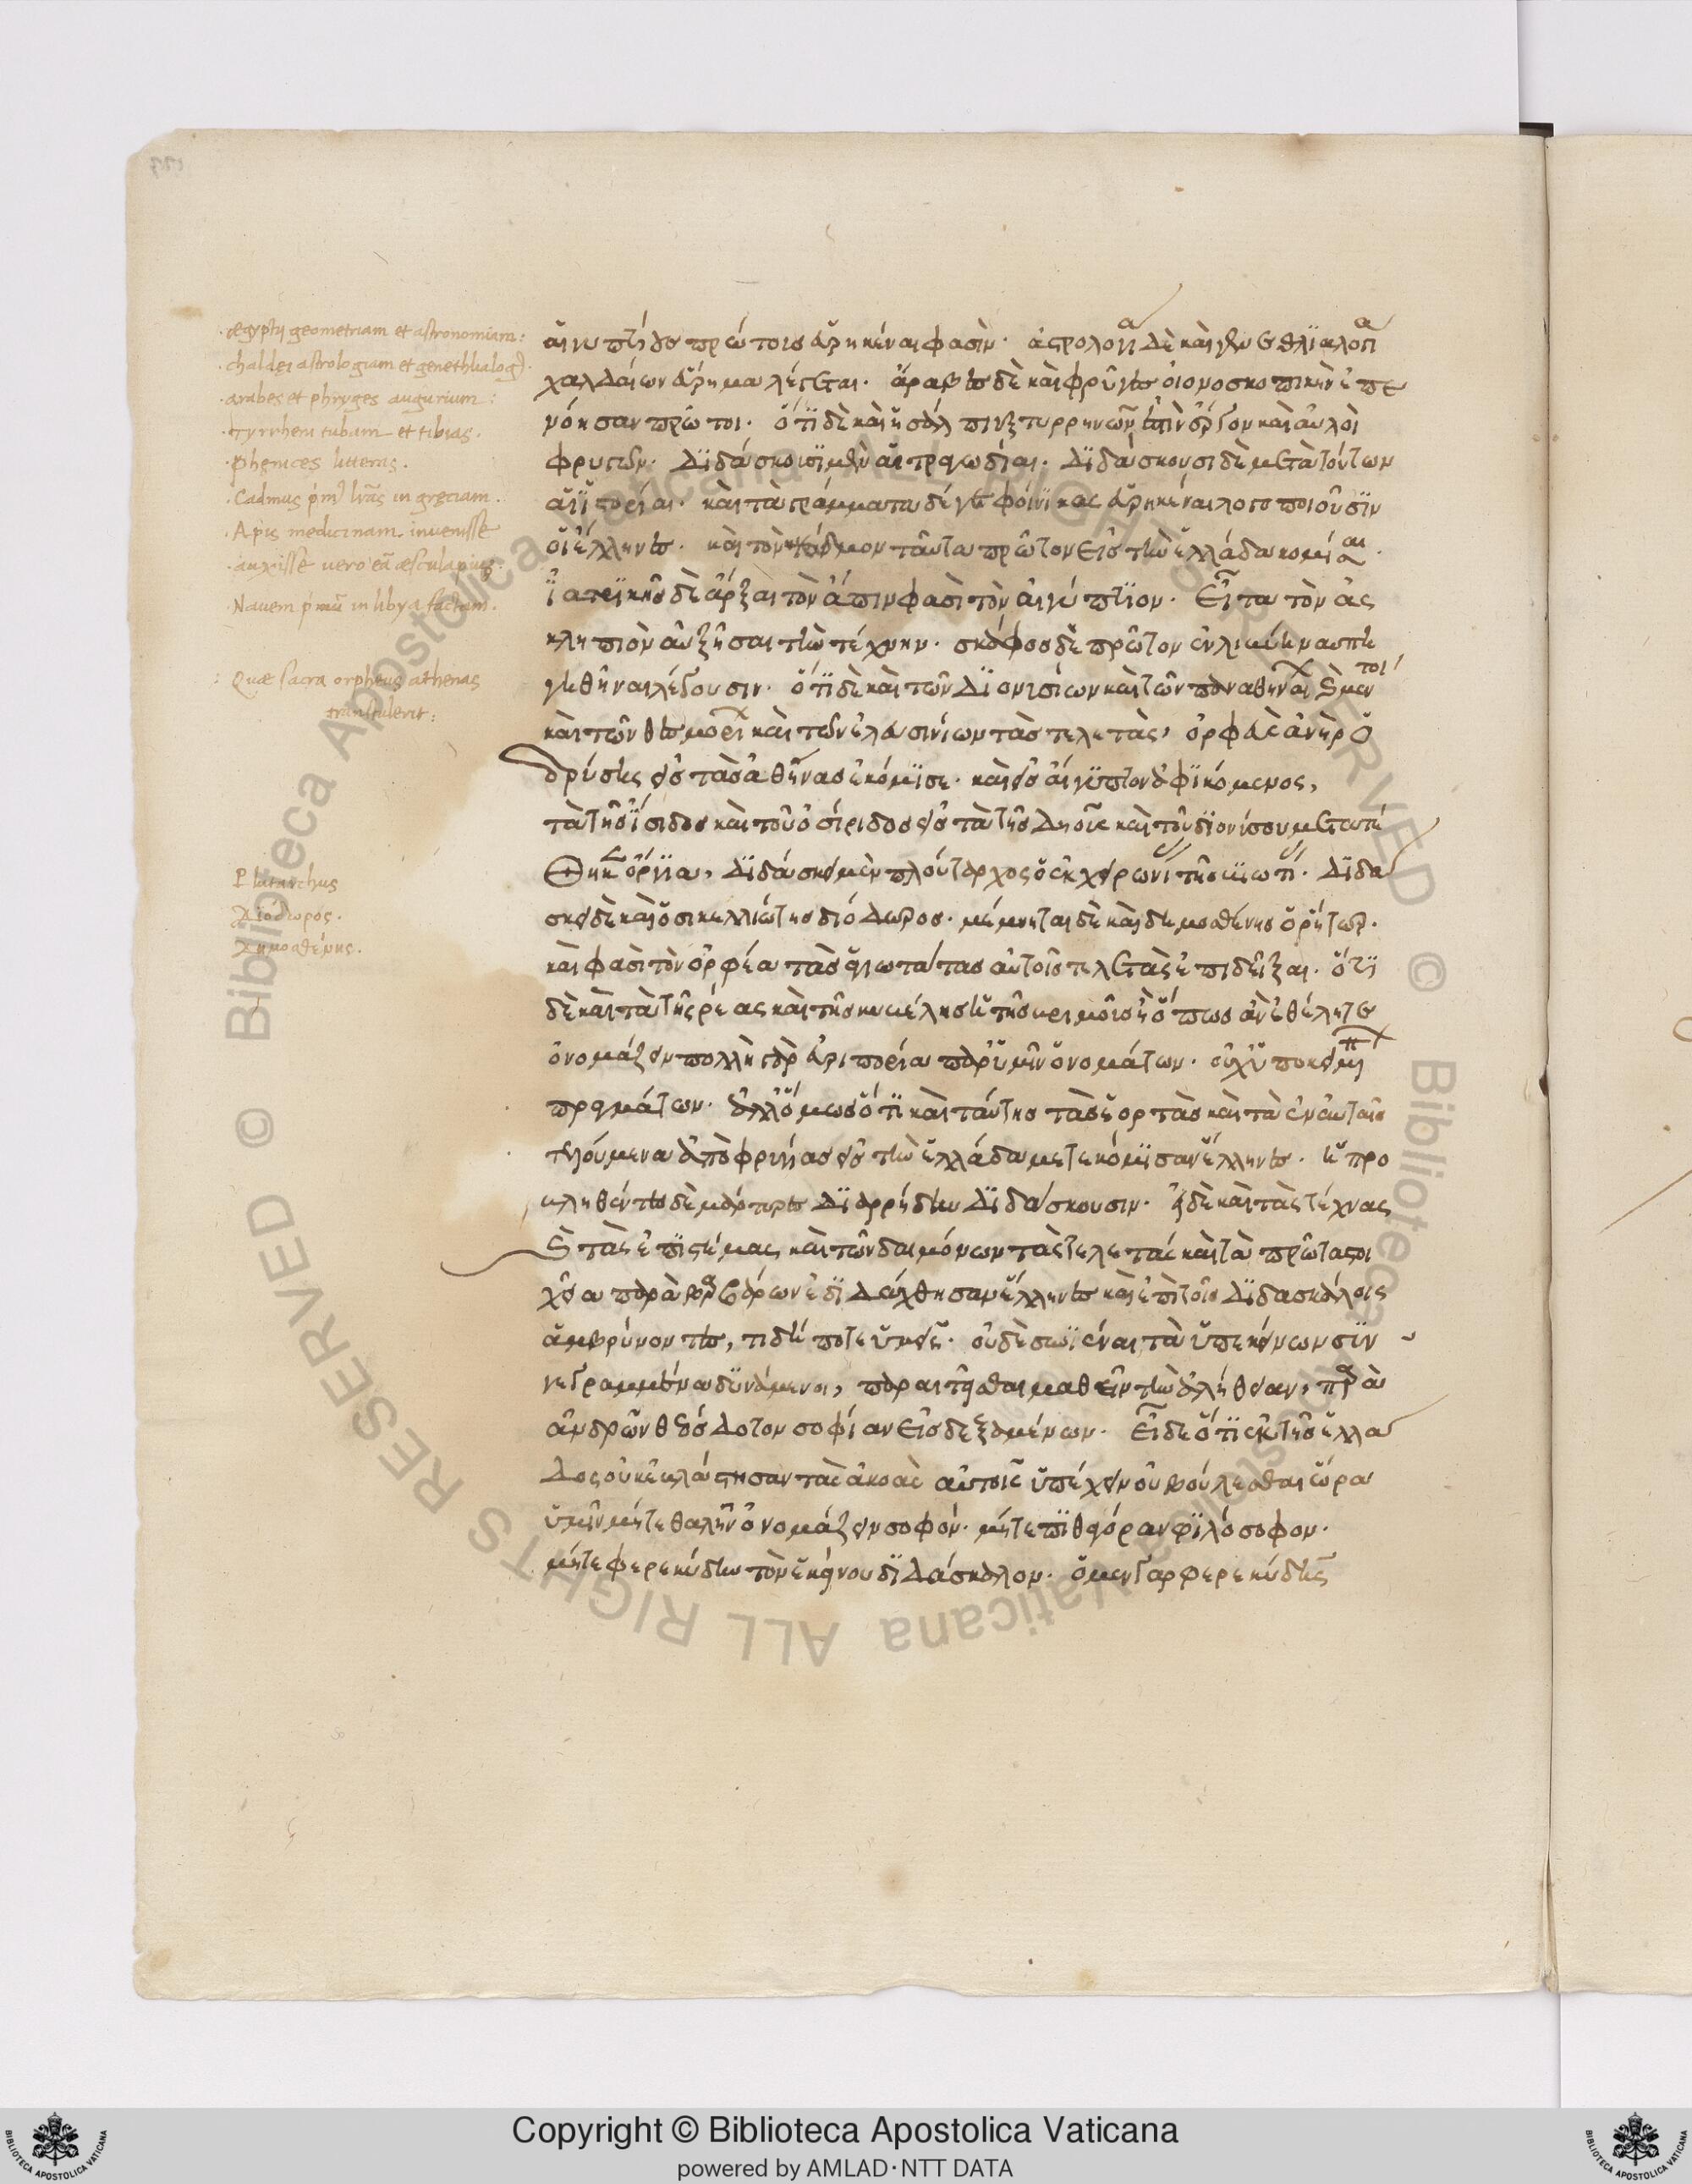 ·ægyptij geometriam et astronomiam:
·chaldei astrologiam et genethlialog
·arabes et phryges augurium:
·tyrrheni tubam et tibias.
·phenices litteras.
·Cadmus in gręciam.
·Apis medicinam. inuenisse
·auxisse uero æsculapius
·Nauem in libya factam.
: Quæ sacra orpheus athenas
transtulerit:
Plutarchus
Διόδωρός.
Δημοσθένης.
αἰγυπτίους πρώτους εὑρηκέναι φασὶν· ἀστρολογίαν δὲ καὶ γενεθλϊαλογίαν
χαλδαίων εὕρημα λέγεται· ἄραβες δὲ καὶ φρύγες οἰονοσκοπικὴν ἐπε
νόησαν πρῶτοι· ὅτϊ δὲ καὶ ἡ σάλπιγξ τυρρηνῶν ἐστὶν ἔργον καὶ αὐλοὶ
φρυγῶν· Δϊδάσκουσϊ μὲν αἱ τραγωδίαι· Δϊδάσκουσι δὲ μετὰ τούτων
αἱ ϊστορίαι· καὶ τὰ γράμματα δέ γε φοίνϊκας εὑρηκέναι λογοποιοῦσϊν
οἱ ἕλληνες· καὶ τὸν κάδμον ταῦτα πρῶτον εἰς τὴν ἑλλάδα κομίσαι·
ἰατρϊκῆς δὲ ἄρξαι τὸν ἄπιν φασὶ τὸν αἰγύπτϊον· εἶτα τὸν ἀσ
κληπιὸν αὐξῆσαι τὴν τέχνην· σκάφος δὲ πρῶτον ἐν λιβύη ναυπη
γηθῆναι λέγουσιν· ὅτϊ δὲ καὶ τῶν Δϊονυσίων καὶ τῶν παναθηναίων μέντοι
καὶ τῶν θεσμοφορίων καὶ τῶν ἐλευσινίων τὰς τελετὰς, ὀρφεὺς ἀνὴρ ὀ
δρύσης εἰς τὰς ἀθήνας ἐκόμϊσε· καὶ εἰς αἴγυπτον ἀφϊκόμενος,
τὰ τῆς ἴσιδος καὶ τοῦ ὀσίριδος εἰς τὰ τῆς Δηοῦς καὶ τοῦ διονύσου μετατέ
θηκεν ὄργια, Δϊδάσκει μὲν πλούταρχος ὁ ἐκ χερωνείας τῆς βοιωτίας· Δϊδα
σκει δὲ καὶ ὁ σικελλιώτης διόδωρος· μέμνηται δὲ καὶ δημοσθένης ὁ ῥήτωρ·
καὶ φασὶ τὸν ὀρφέα τὰς ἁγιωτάτας αὐτοῖς τελετὰς ἐπιδεῖξαι· ὅτϊ
δὲ καὶ τὰ τῆς ῥέας καὶ τῆς κυβέλης ἢ τῆς βριμοῦς ἢ ὅπως ἂν ἐθέλητε
ὀνομάζειν πολλὴ γὰρ εὐπορία παρ' ὑμῖν ὀνομάτων· οὐχ ὑποκειμένων
πραγμάτων· ἀλλ' ὅμως ὅτϊ καὶ ταύτης τὰς ἑορτὰς καὶ τὰ ἐν αὐταῖς
τελούμενα ἀπὸ φρυγίας εἰς τὴν ἑλλάδα μετεκόμϊσαν ἕλληνες· ἢ προ
κληθέντες δὲ μάρτυρες Δϊαρρήδην Δϊδάσκουσιν· εἰ δὲ καὶ τὰς τέχνας
καὶ τὰς ἐπιστήμας καὶ τῶν δαιμόνων τὰς τελετάς καὶ τὰ πρῶτα στοι
χεῖα παρὰ βαρβάρων ἐδιδάχθησαν ἕλληνες καὶ ἐπὶ τοῖς Δϊδασκάλοις
ἁμβρύνονται, τι δή ποτε ὑμεῖς· οὐδὲ ξυνϊέναι τὰ ὑπ' ἐκείνων ξυγ
γεγραμμένα δυνάμενοι, παραιτεῖσθαι μαθεῖν τὴν ἀλήθειαν, παρὰ
ἀνδρῶν θεόσδοτον σοφίαν εἰσδεξαμένων· εἰ δὲ ὅτϊ ἐκ τῆς ἑλλά
δος οὐκ ἐβλάστησαν τὰς ἀκοὰς αὐτοῖς ὑπέχειν οὐ βούλεσθαι ὥρα
ὑμῖν μήτε θαλῆν ὀνομάζειν σοφόν· μήτε πϊθαγόραν φϊλόσοφον·
μήτε φερεκύδην τὸν ἐκείνου δϊδάσκαλον· ὁ μὲν γὰρ φερεκύδης
Copyright © Biblioteca Apostolica Vaticana
powered by AMLAD·NTT DATA